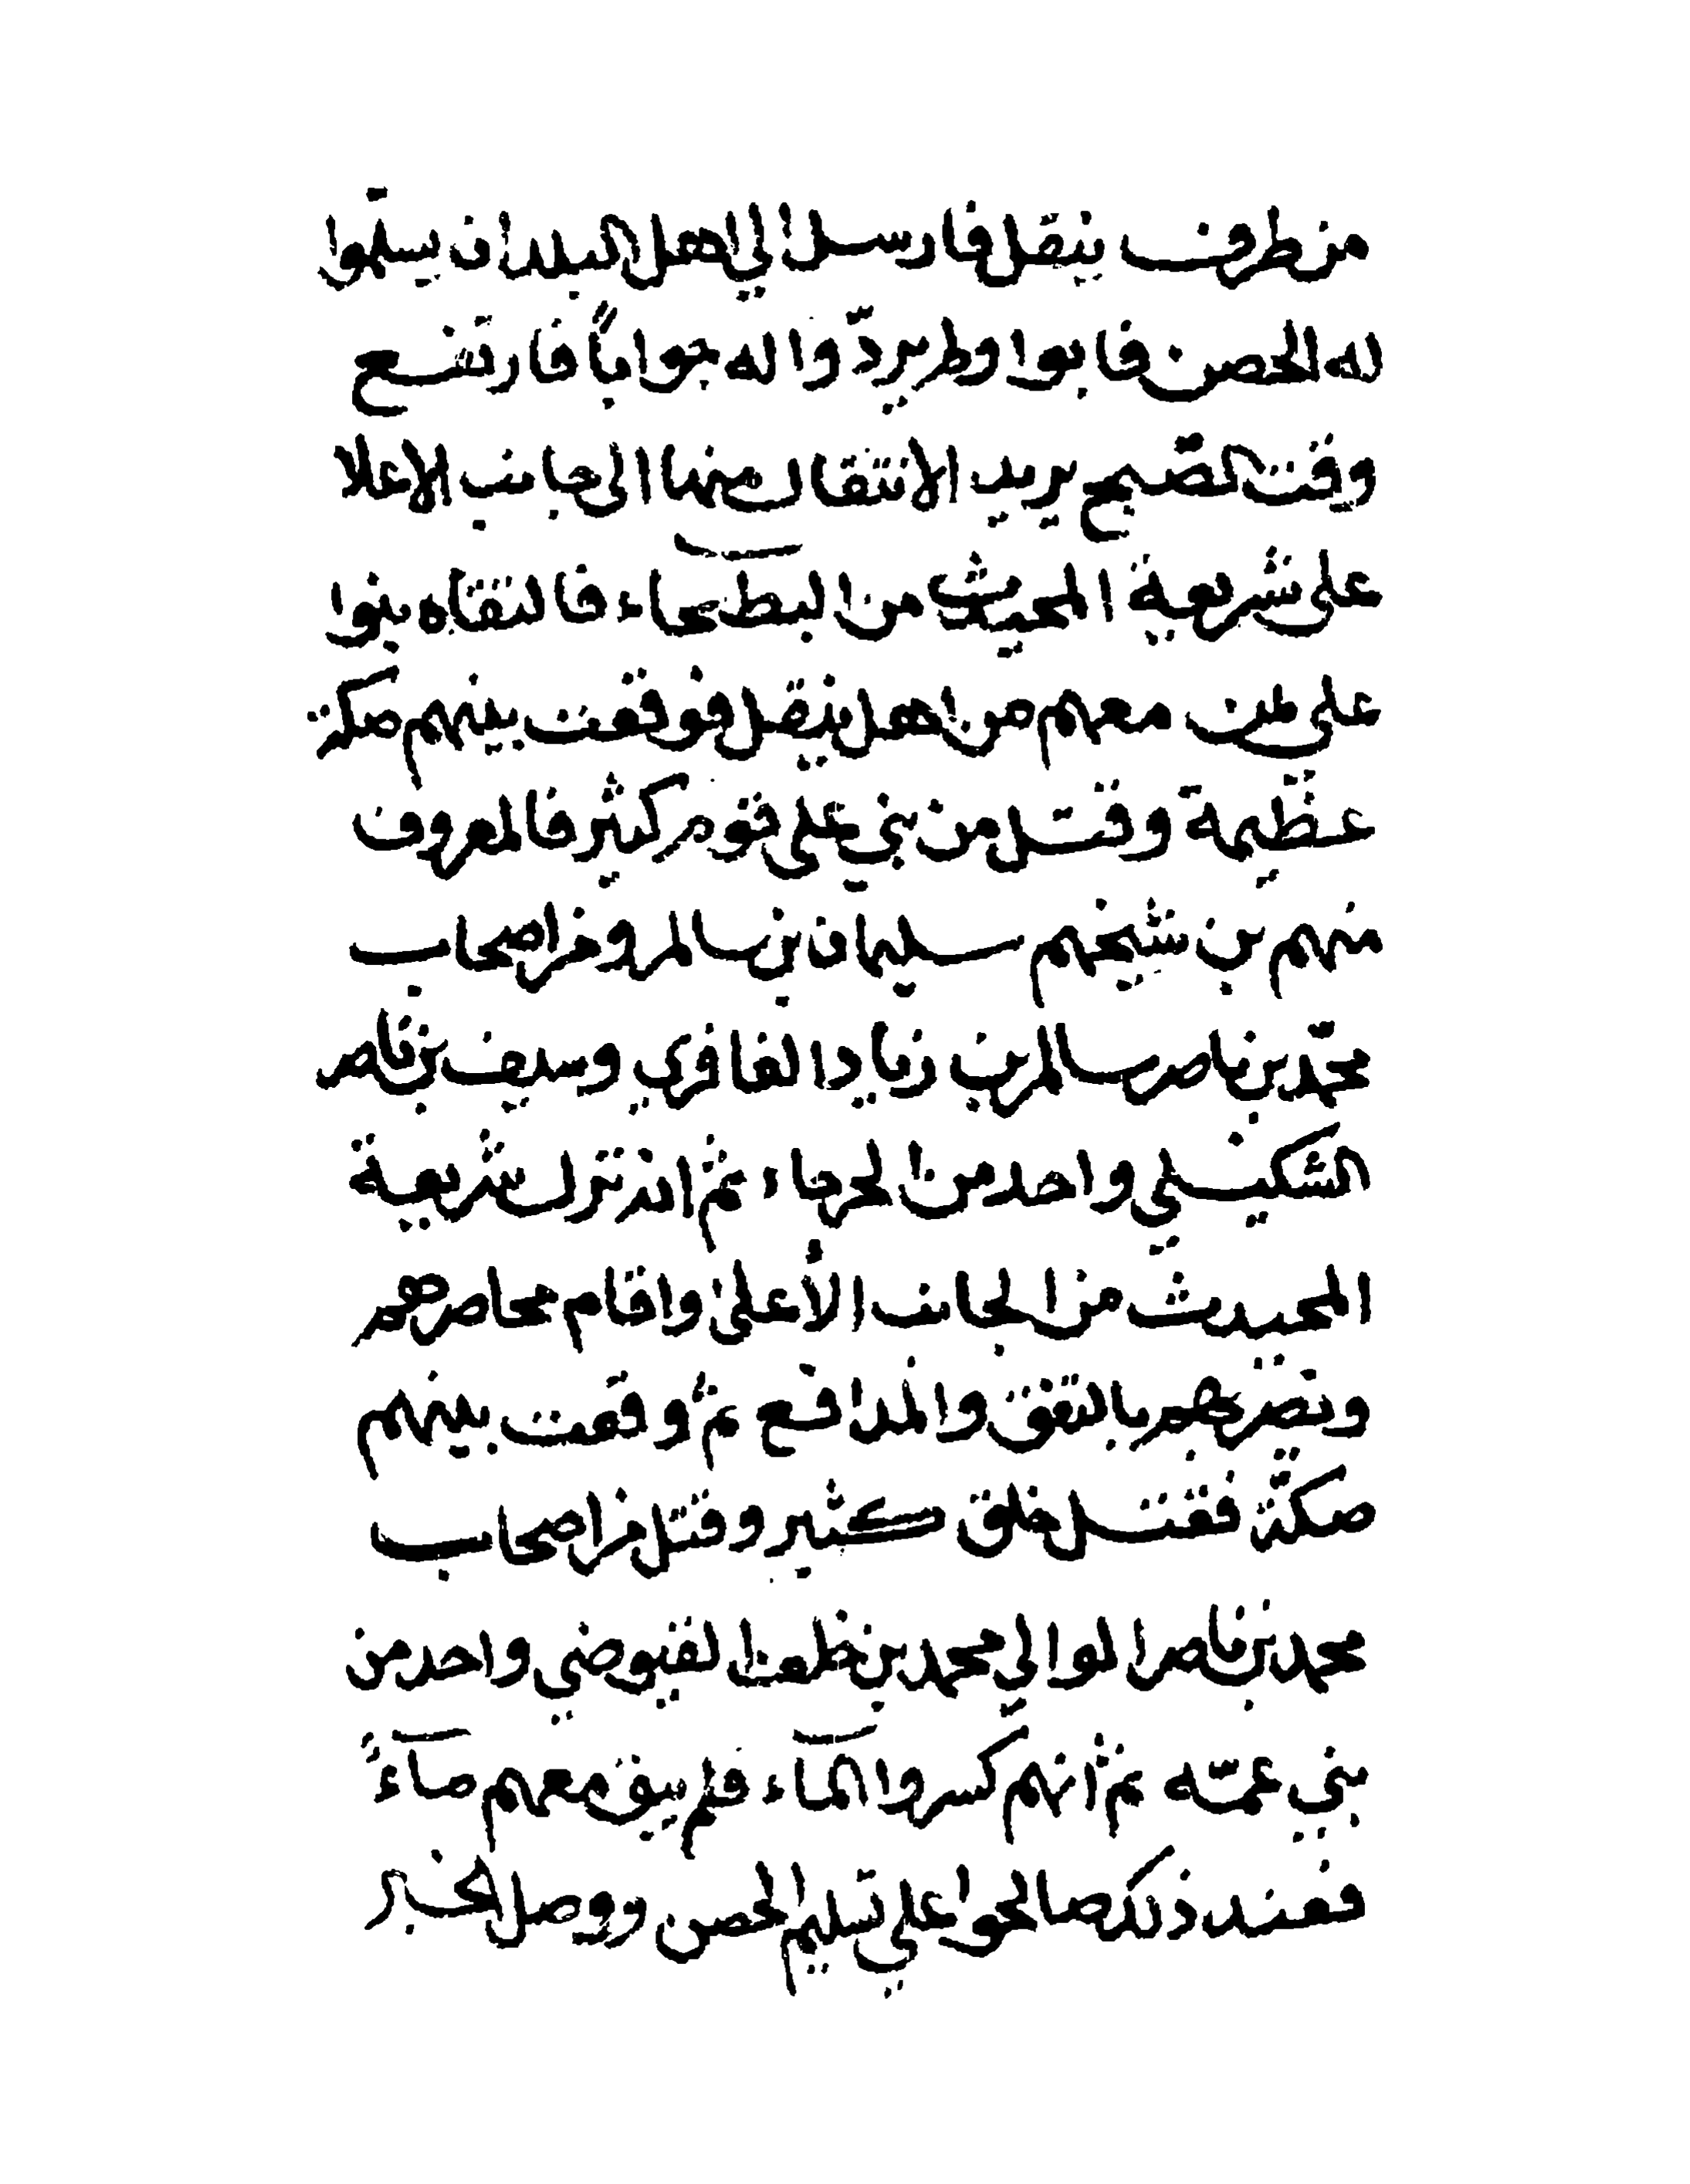 من طرف ينقل فارسل الي اهل البلد ان يسلّموا
له الحصن فابوا ولم يردّوا له جواباً فارتفع
وقت الصّبح يريد الانتقال منها الى جانب الاعلا
على شريعة المحيدث من البطحاء فالتقاه بنوا
على ومن معهم من اهل ينقل فوقعت بينهم صكة
عظيمة وقتل من بني على قوم كثير فالمعروف
منهم بن شيخهم سليمان بن سالم ومن اصحاب
محمّد بن ناصر سالم بن زياد الغافري وسيف بن ناصر
الشكيلي واحد من الجرحاء ثم انه نزل شريعة
المحيدث من الجانب الأعلى واقام محاصرهم
ونضربهم بالتفق والمدافع ثم وقعت بينهم
صكّة فقتل خلق كثير وقتل من اصحاب
محمد بن ناصر الوالي محمد بن خلف القيوضي واحد من
بني عمّه ثم أنهم كسروا المآء فلم يبق معهم مآءً
فعند ذلك صالحوا على تسليم الحصن ووصل الخبر